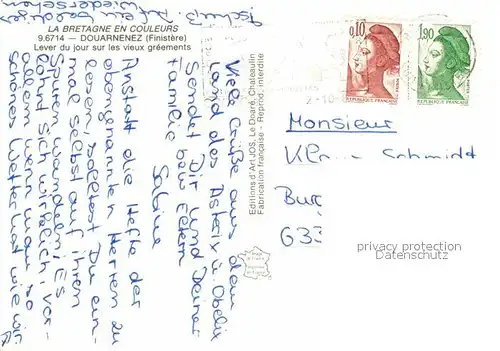 LA BRETAGNE EN COULEURS
9.6714 — DOUARNENEZ (Finistère)
Lever du jour sur les vieux gréements
Viele Grüße aus dem
Land des Asterix u. Obelix
sendet Dir und Deiner
Familie bzw. Eltern
Sabine
Anstatt die Hefte der
obengenannten Herren zu
lesen, solltest Du ein-
mal selbst auf ihren
Spuren wandeln; Es
lohnt sich wirklich, vor
allem wenn man so
schönes Wetter hat wie wir
Tschüß Auf ein baldiges
Wiedersehen
Editions d'Art JOS, Le Doaré, Chateaulin
Fabrication française - Reprod. interdite
0,10
REPUBLIQUE FRANÇAISE
1,90
REPUBLIQUE FRANÇAISE
2-10
Monsieur
Schmidt
633
privacy protection
Datenschutz